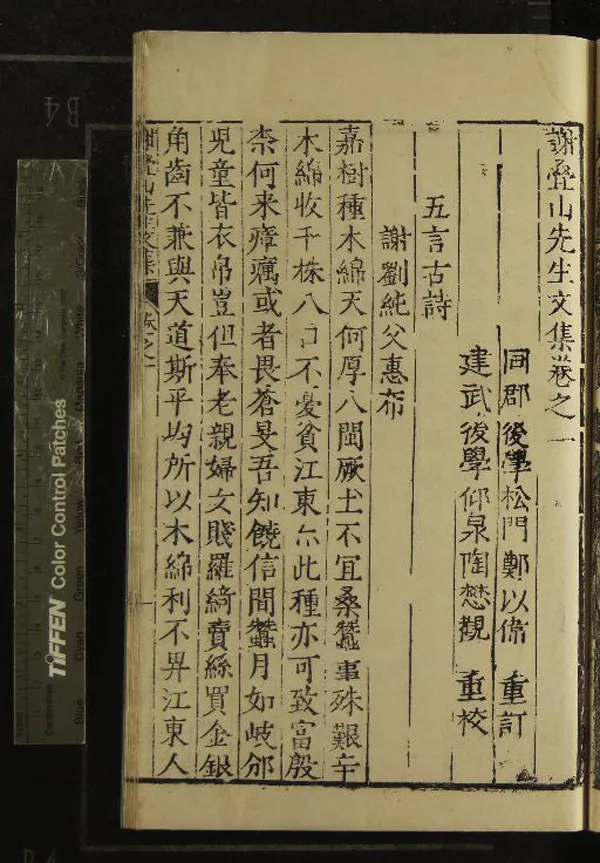 謝疊山先生文集卷之一
同郡後學松門鄭以偉 重訂
建武後學仰泉陶懋觀 重校
五言古詩
謝劉純父惠布
嘉樹種木綿天何厚八閩厥土不宜桑蠶事殊艱辛
木綿收千株八口不憂貧江東亦此種亦可致富殷
柰何来瘴癘或者畏蒼旻吾知饒信間蠶月如岐邠
児童皆衣帛豈但奉老親婦女賤羅綺賣絲買金銀
角齒不兼與天道斯平均所以木綿利不畀江東人
謝疊山先生文集 卷之一 一
TIFFEN Color Control Patches
Blue Cyan Green Yellow Red Magenta White Black
B4